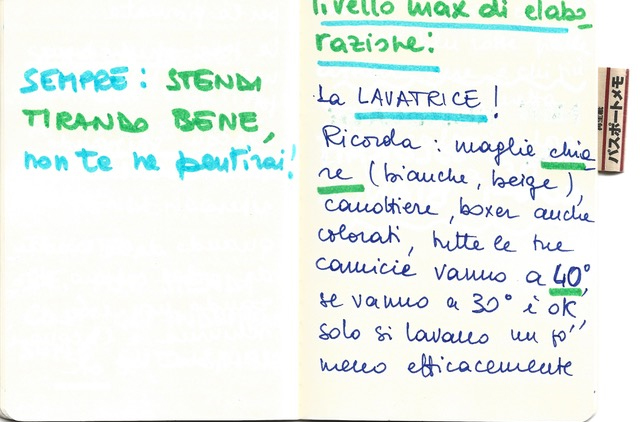 SEMPRE: STENDI
TIRANDO BENE,
non te ne pentirai!
livello max di elabo
razione:
La LAVATRICE!
Ricorda: maglie chia
re (bianche, beige),
canottiere, boxer anche
colorati, tutte le tue
camicie vanno a 40°,
se vanno a 30° è ok,
solo si lavano un po'
meno efficacemente
パスポートメモ